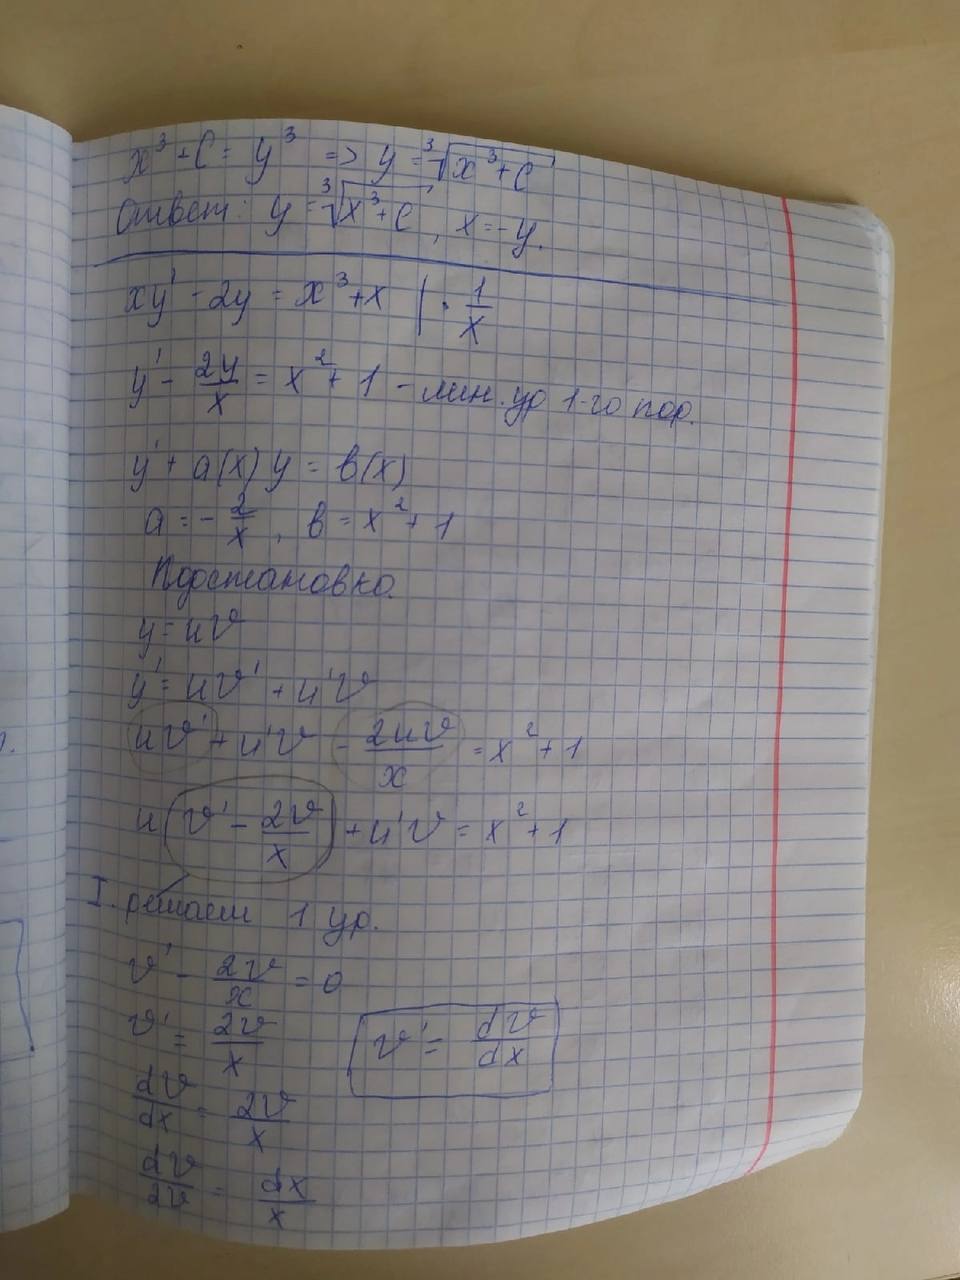 x³ + C = y³ => y = ∛(x³ + C)
Ответ: y = ∛(x³ + C), x = -y.
xy' - 2y = x³ + x | · 1/x
y' - 2y/x = x² + 1 - лин. ур 1-го пор.
y' + a(x) y = b(x)
a = - 2/x, b = x² + 1
Подстановка.
y = uv
y' = uv' + u'v
uv' + u'v - 2uv/x = x² + 1
u(v' - 2v/x) + u'v = x² + 1
I. решаем 1 ур.
v' - 2v/x = 0
v' = 2v/x
v' = dv/dx
dv/dx = 2v/x
dv/2v = dx/x